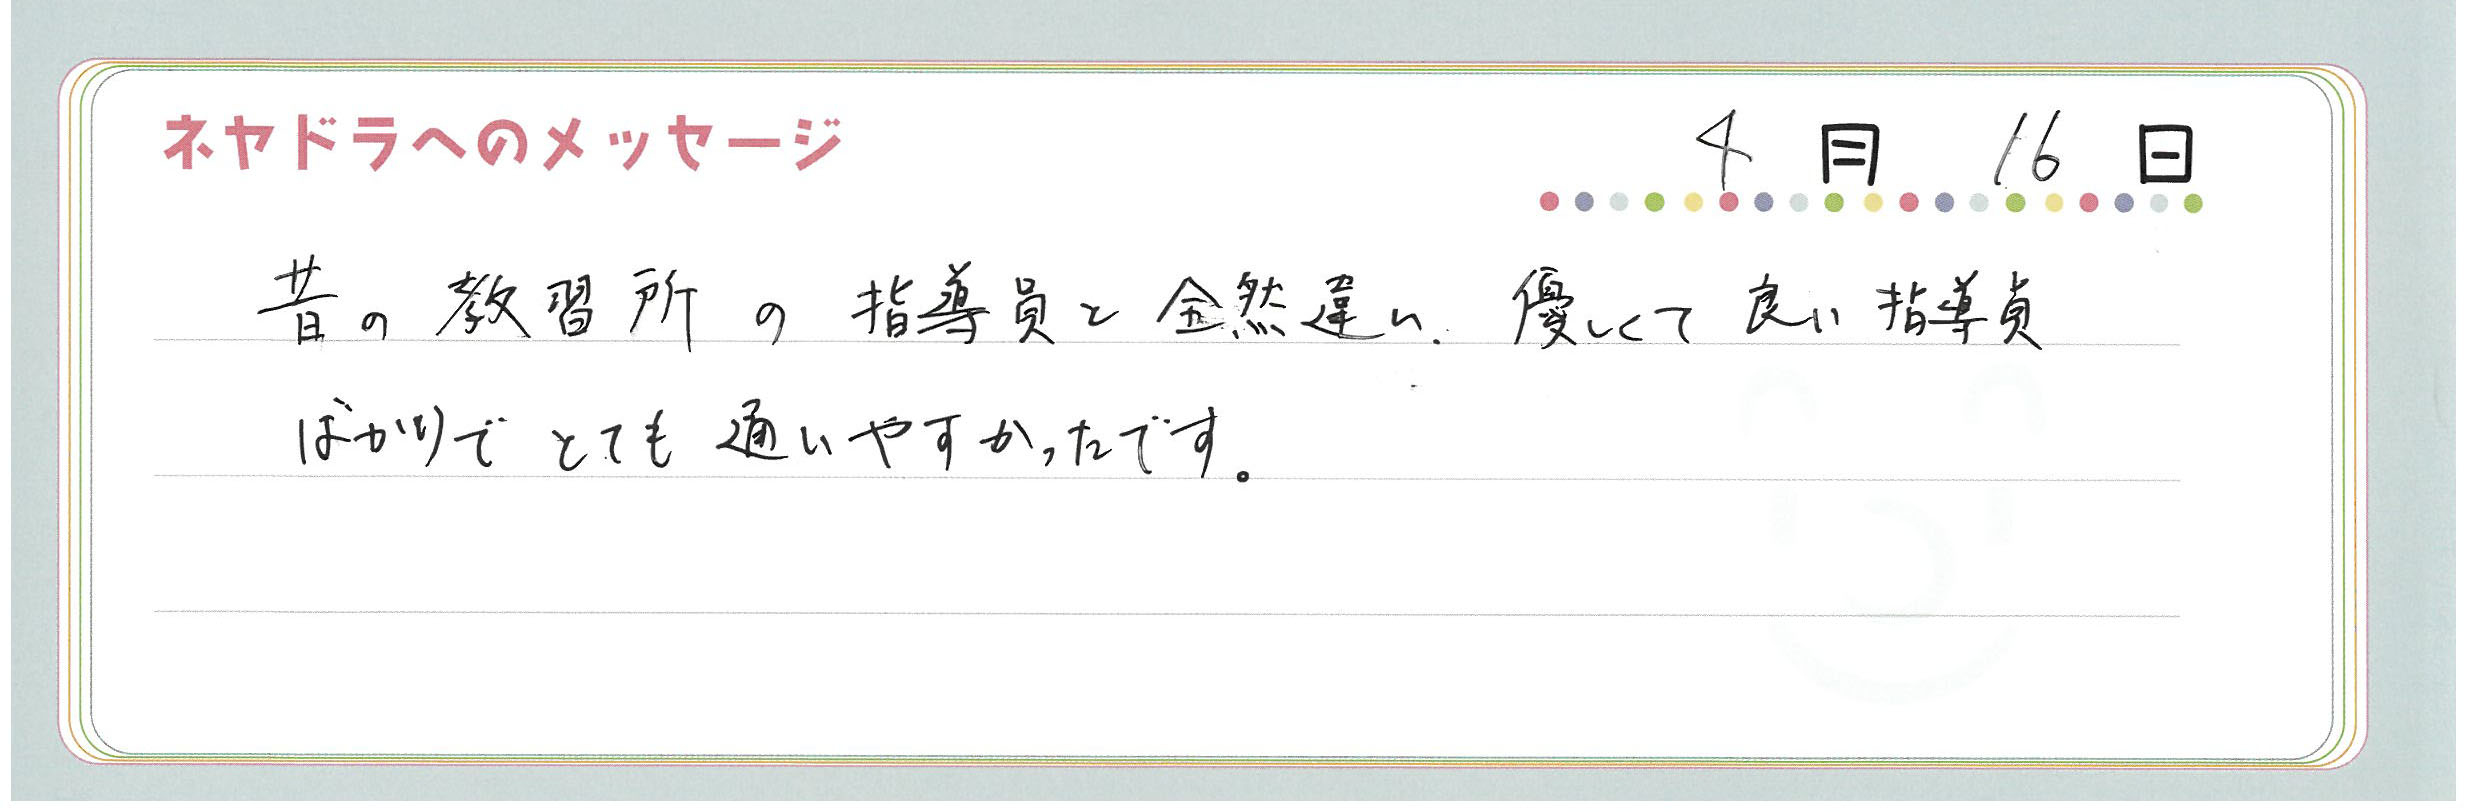 ネヤドラへのメッセージ
4月 16日
昔の教習所の指導員と全然違い、優しくて良い指導員
ばかりでとても通いやすかったです。